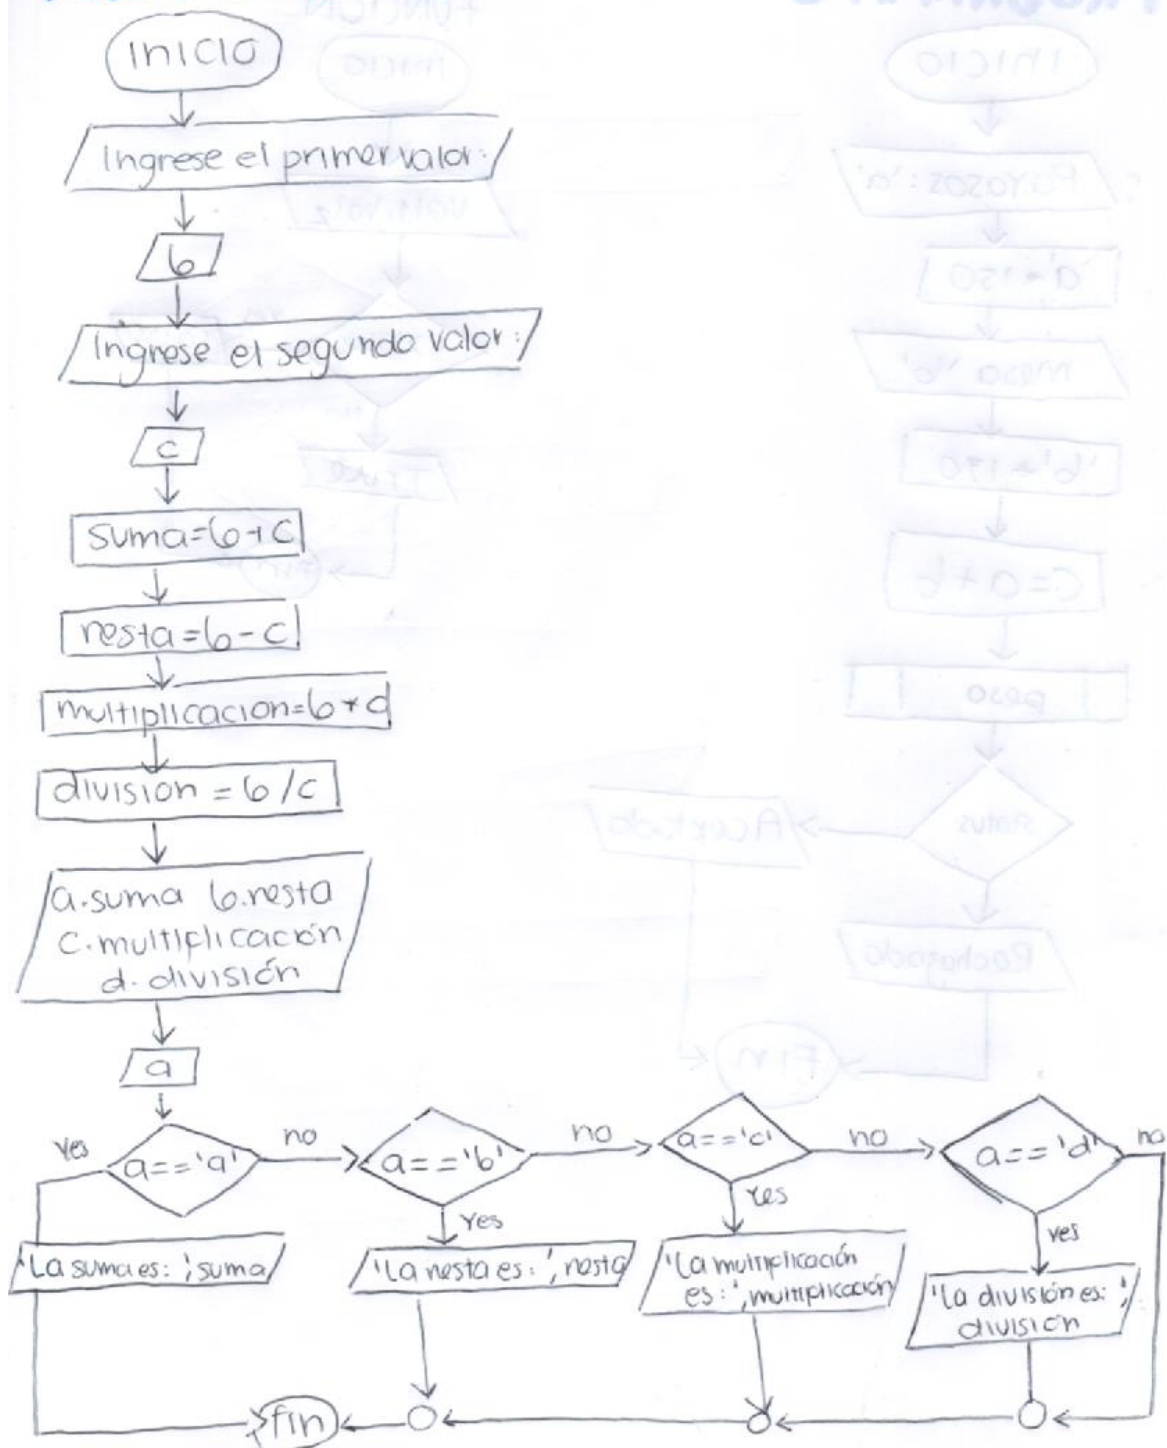 inicio
Ingrese el primer valor:
b
Ingrese el segundo valor:
c
suma=b+c
resta=b-c
multiplicacion=b*c
division=b/c
a.suma b.resta
c.multiplicación
d.división
a
yes
a=='a'
no
a=='b'
no
a=='c'
no
a=='d'
no
yes
yes
yes
'La suma es:', suma
'La resta es:', resta
'La multiplicación
es:', multiplicación
'La división es:',
división
fin